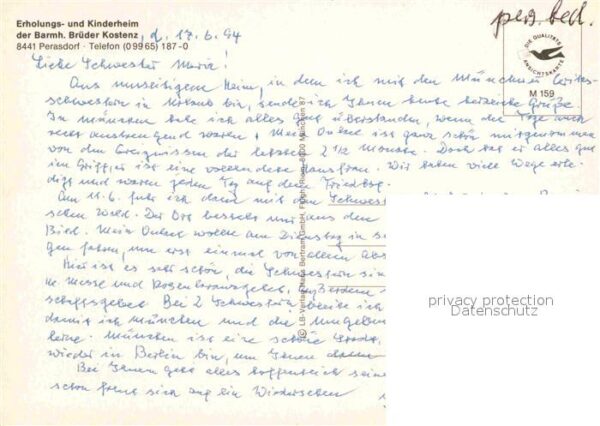 Erholungs- und Kinderheim
der Barmh. Brüder Kostenz, d. 17.6.94
8441 Perasdorf · Telefon (0 99 65) 187-0
pers. bed.
DIE QUALIT�
ANSICHTSKARTE
M 159
Liebe Schwester Maria!
Aus unseitigem Heim, in dem ich mit den Münchner
schwestern in Urlaub bin, sende ich Ihnen heute herzliche Grüße.
In München habe ich alles gut überstanden, wenn die Tage auch
recht anstrengend waren. Mein Onkel ist ganz schön mitgenommen
von den Ereignissen der letzten 2 1/2 Monate. Doch hat er alles gut
im Griff, er ist eine vollendete Hausfrau. Wir haben viele Wege erle-
digt und waren jeden Tag auf dem Friedhof.
Am 11.6. fuhr ich dann mit den Schwest
schen Wald. Der Ort besteht nur aus dem
Mein Onkel wollte am Dienstag in
gen fahren, um erst einmal von allem Abs
Hier ist es sehr schön, die Schwestern sin
hl. Messe und Rosenkranzgebet, außerdem
Bei 2 Schwestern bleibe ich
damit ich München und die Umgebun
lerne. München ist eine schöne Stadt.
wieder in Berlin bin, um Ihnen dann
Bei Ihnen geht alles hoffentlich seine
schon freut sich auf ein Wiedersehen
© LB-Verlag Maria Bertram GmbH, 8000 München 87
privacy protection
Datenschutz